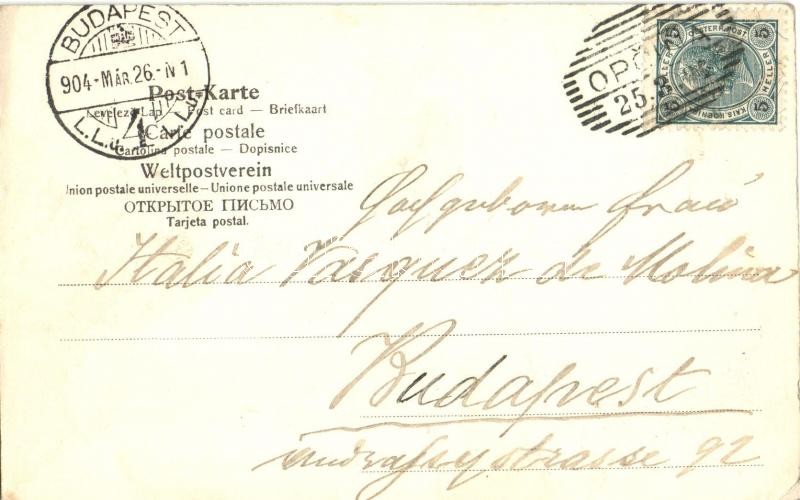 BUDAPEST
904-MÁR.26.-N1
4
Post-Karte
Levelező-Lap — Post card — Briefkaart
Carte postale
Cartolina postale — Dopisnice
Weltpostverein
Union postale universelle — Unione postale universale
ОТКРЫТОЕ ПИСЬМО
Tarjeta postal.
OESTERR. POST
5 5
HELLER HELLER
5 5
OPOČ
25.
Hochgeboren Frau
Italia Vasquez de Molina
Budapest
Andrassystrasse 92